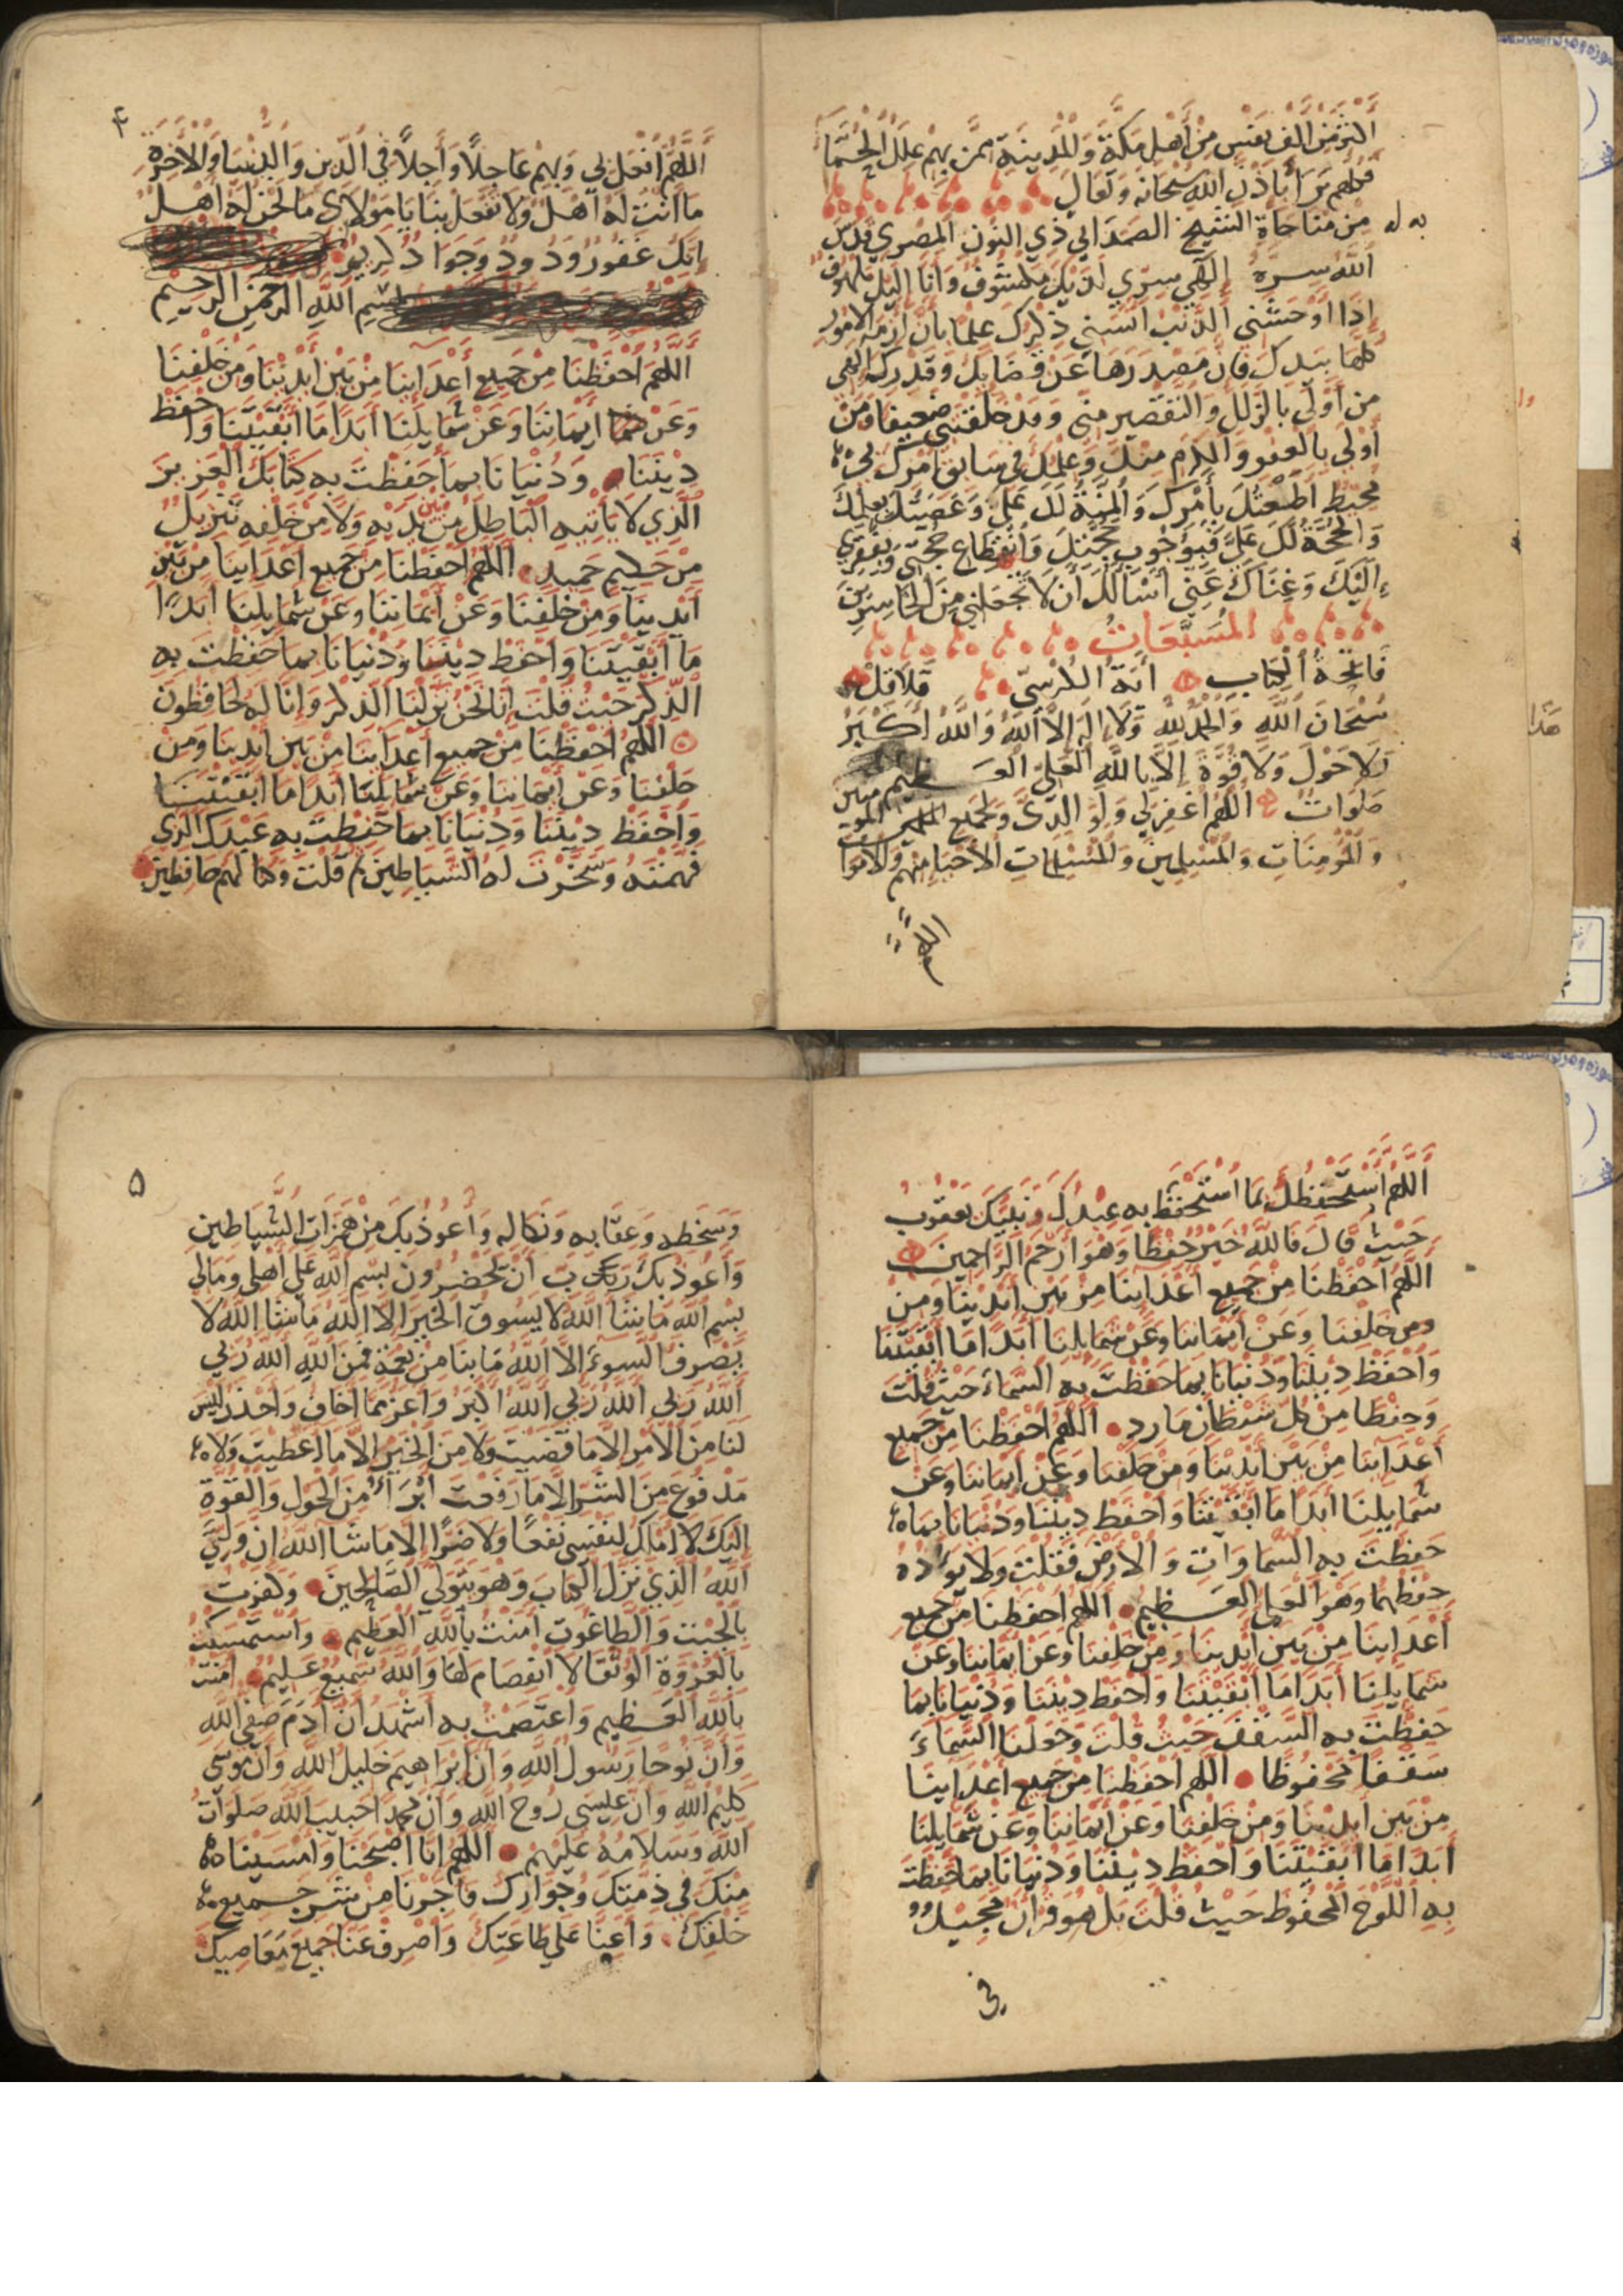 اكثر من الف نفس من أهل مكة والمدينة ممن بهم علل الحمى
فكلهم برأ باذن الله سبحانه وتعالى
من مناجاة الشيخ الصمداني ذي النون المصري قدس
الله سره إلهي سري لديك مكشوف وأنا اليك ملهوف
إذا اوحشني الذنب آنسني ذكرك علما بأن ازمة الامور
كلها بيدك فان مصدرها عن قضائك وقدرك الهي
من أولى بالزلل والتقصير مني وقد خلقتني ضعيفا ومن
أولى بالعفو والكرم منك وعلمك في سابق أمرك بي
محيط اطعتك بأمرك والمنة لك علي وعصيتك بعلمك
والحجة لك علي فبوجوب حجتك وانقطاع حجتي وبفقري
إليك وغناك عني اسألك ان لا تجعلني من الخاسرين
المسبعات
فاتحة الكتاب آية الكرسي قلاقل
سبحان الله والحمد لله ولا إله إلا الله والله أكبر
ولا حول ولا قوة إلا بالله العلي العظيم
صلوات اللهم اغفر لي ولوالدي ولجميع المؤمنين
والمؤمنات والمسلمين والمسلمات الأحياء منهم والأموات
٤
اللهم افعل بي وبهم عاجلاً وآجلاً في الدين والدنيا والآخرة
ما انت له أهل ولا تفعل بنا يا مولاي ما نحن له أهل
انك غفور ودود وجواد كريم
بسم الله الرحمن الرحيم
اللهم احفظنا من جميع أعداينا من بين أيدينا ومن خلفنا
وعن ايماننا وعن شمايلنا أبدا ما أبقيتنا واحفظ
ديننا ودنيانا بما حفظت به كتابك العزيز
الذي لا يأتيه الباطل من بين يديه ولا من خلفه تنزيل
من حكيم حميد اللهم احفظنا من جميع اعداينا من بين
أيدينا ومن خلفنا وعن أيماننا وعن شمايلنا ابدا
ما أبقيتنا واحفظ ديننا ودنيانا بما حفظت به
الذكر حيث قلت إنا نحن نزلنا الذكر وإنا له لحافظون
اللهم احفظنا من جميع أعداينا من بين ايدينا ومن
خلفنا وعن أيماننا وعن شمايلنا ابدا ما ابقيتنا
واحفظ ديننا ودنيانا بما حفظت به عبدك الذي
فهمته وسخرت له الشياطين ثم قلت وكنا لهم حافظين
اللهم أستحفظك بما استحفظ به عبدك ونبيك يعقوب
حيث قال فالله خير حفظا وهو أرحم الراحمين
اللهم احفظنا من جميع أعداينا من بين أيدينا ومن
ومن خلفنا وعن ايماننا وعن شمايلنا ابدا ما ابقيتنا
واحفظ ديننا ودنيانا بما حفظت به السماء حيث قلت
وحفظا من كل شيطان مارد اللهم احفظنا من جميع
أعداينا من بين أيدينا ومن خلفنا وعن ايماننا وعن
شمايلنا أبدا ما أبقيتنا واحفظ ديننا ودنيانا بما
حفظت به السماوات والارض فقلت ولا يؤده
حفظهما وهو العلي العظيم اللهم احفظنا من جميع
أعداينا من بين أيدينا ومن خلفنا وعن ايماننا وعن
شمايلنا أبدا ما أبقيتنا واحفظ ديننا ودنيانا بما
حفظت به السقف حيث قلت وجعلنا السماء
سقفا محفوظا اللهم احفظنا من جميع اعداينا
من بين ايدينا ومن خلفنا وعن ايماننا وعن شمايلنا
ابدا ما ابقيتنا واحفظ ديننا ودنيانا بما حفظت
به اللوح المحفوظ حيث قلت بل هو قرآن مجيد
في
٥
وسخطه وعقابه ونكاله وأعوذ بك من همزات الشياطين
وأعوذ بك رب ان يحضرون بسم الله على أهلي ومالي
بسم الله ما شا الله لا يسوق الخير الا الله ما شا الله لا
يصرف السوء الا الله ما بنا من نعمة فمن الله الله ربي
الله ربي الله ربي الله اكبر واعز مما اخاف واحذر ليس
لنا من الأمر الا ما قضيت ولا من الخير الا ما اعطيت ولا
مدفوع من الشر الا ما رفعت ابرأ من الحول والقوة
إليك لا املك لنفسي نفعا ولا ضرا إلا ما شا الله ان وليي
الله الذي نزل الكتاب وهو يتولى الصالحين وكفرت
بالجبت والطاغوت امنت بالله العظيم واستمسكت
بالعروة الوثقا لا انفصام لها والله سميع عليم امنت
بالله العظيم واعتصمت به اشهد ان آدم صفي الله
وان نوحا رسول الله وان إبراهيم خليل الله وان موسى
كليم الله وان عيسى روح الله وان محمدا حبيب الله صلوات
الله وسلامه عليهم اللهم انا اصبحنا وامسينا
منك في ذمتك وجوارك فاجرنا من شر جميع
خلقك واعنا على طاعتك واصرف عنا جميع معاصيك